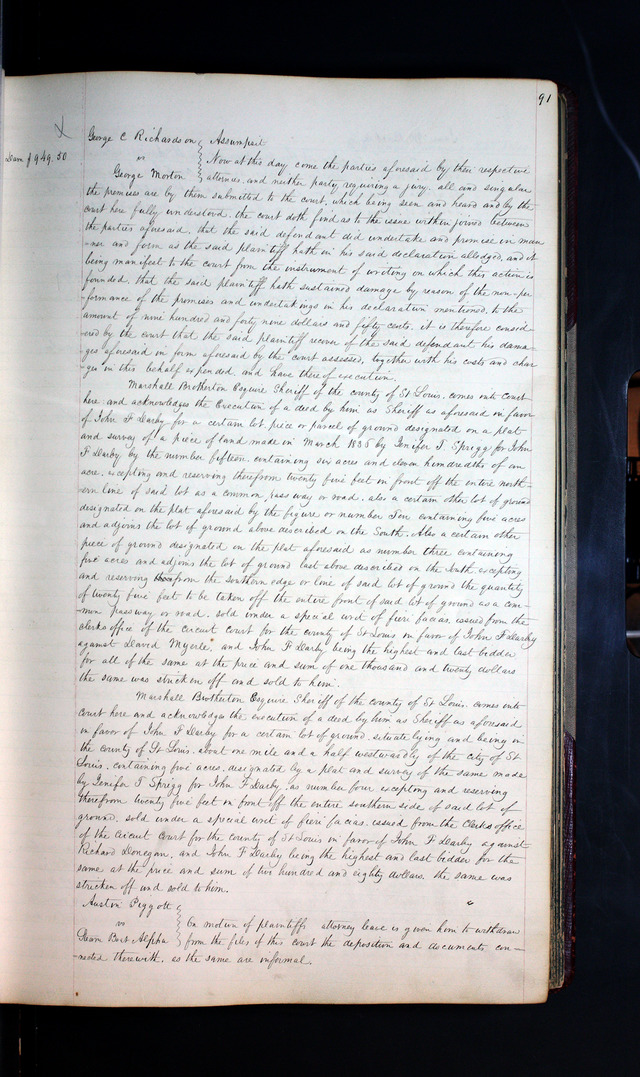 91
X
George C Richardson } Assumpsit
Dam $949.50
vs } Now at this day come the parties aforesaid by their respective
George Morton } attornies, and neither party requiring a jury, all and singular
the premises are by them submitted to the court, which being seen and heard and by the
court here fully understood, the court doth find as to the issue within joined between
the parties aforesaid, that the said defendant did undertake and promise in man
-ner and form as the said plaintiff hath in his said declaration alledged, and it
being manifest to the court from the instrument of writing on which this action is
founded, that the said plaintiff hath sustained damage by reason of the non-per
-formance of the promises and undertakings in his declaration mentioned, to the
amount of nine hundred and forty nine dollars and fifty cents. it is therefore consid
-ered by the court that the said plaintiff recover of the said defendant his dama-
-ges aforesaid in form aforesaid by the court assessed, together with his costs and char
-ges in this behalf expended, and have thereof execution.
Marshall Brotherton Esquire Sheriff of the county of St Louis. comes into Court
here and acknowledges the Execution of a deed by him as Sheriff as aforesaid in favor
of John F Darby for a certain lot, piece or parcel of ground designated on a plat
and survey of a piece of land made in March 1836 by Jenifer T. Sprigg for John
F Darby by the number fifteen. containing six acres and eleven hundredths of an
acre. excepting and reserving therefrom twenty five feet in front off the entire north-
-ern line of said lot as a common pass way or road. also a certain other lot of ground
designated on the plat aforesaid by the figure or number Two containing five acres
and adjoins the lot of ground above described on the South. Also a certain other
piece of ground designated on the plat aforesaid as number three containing
five acres and adjoins the lot of ground last above described on the South excepting
and reserving from the Southern edge or line of said lot of ground the quantity
of twenty five feet to be taken off the entire front of said lot of ground as a com-
-mon passway or road. sold under a special writ of fieri facias. issued from the
Clerks office of the Circuit Court for the county of St Louis in favor of John F Darby
against David Myerle, and John F Darby being the highest and last bidder
for all of the same at the price and sum of one thousand and twenty dollars
the same was stricken off and sold to him.
Marshall Brotherton Esquire Sheriff of the county of St Louis. comes into
Court here and acknowledges the execution of a deed by him as Sheriff as aforesaid
in favor of John F Darby for a certain lot of ground. situate lying and being in
the county of St Louis. about one mile and a half westwardly of the city of St
Louis. containing five acres. designated by a plat and survey of the same made
by Jenifer T Sprigg for John F Darby. as number four excepting and reserving
therefrom twenty five feet on front off the entire southern side of said lot of
ground. sold under a special writ of fieri facias. issued from the Clerks office
of the Circuit Court for the county of St Louis in favor of John F Darby against
Richard Donegan. and John F Darby being the highest and last bidder for the
same at the price and sum of two hundred and eighty dollars. the same was
stricken off and sold to him.
Austin Piggott }
vs } On motion of plaintiffs attorney leave is given him to withdraw
Steam Boat Alpha } from the files of this court the deposition and documents con-
-nected therewith. as the same are informal.